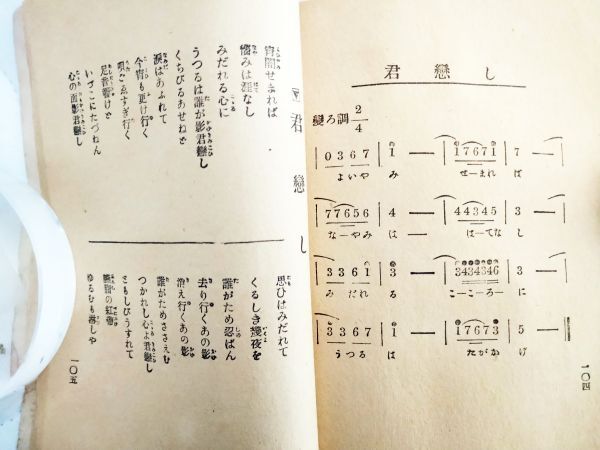 君戀し
變ろ調 2/4
0 3 6 7 | 1 — | 1 7 6 7 1 | 7 — |
よいやみ せーまれ ば
7 7 6 5 6 | 4 — | 4 4 3 4 5 | 3 — |
なーやみ は— はーてな し
3 3 6 1 | 3 — | 3 4 3 4 3 4 6 | 3 — |
みだれ る こーころー に
3 3 6 7 | 1 — | 1 7 6 7 3 | 7 — |
うつる は たがか げ
一〇四
君戀し
宵闇せまれば
惱みは涯なし
みだれる心に
うつるは誰が影君戀し
くちびるあせねど
涙はあふれて
今宵も更け行く
唄ごゑすぎ行く
足音響けど
いづこにたづねん
心の面影君戀し
思ひはみだれて
くるしき幾夜を
誰がため忍ばん
去り行くあの影
消え行くあの影
誰がためささえむ
つかれし心よ君戀し
ともしびうすれて
臙脂の紅帶
ゆるむも淋しや
一〇五